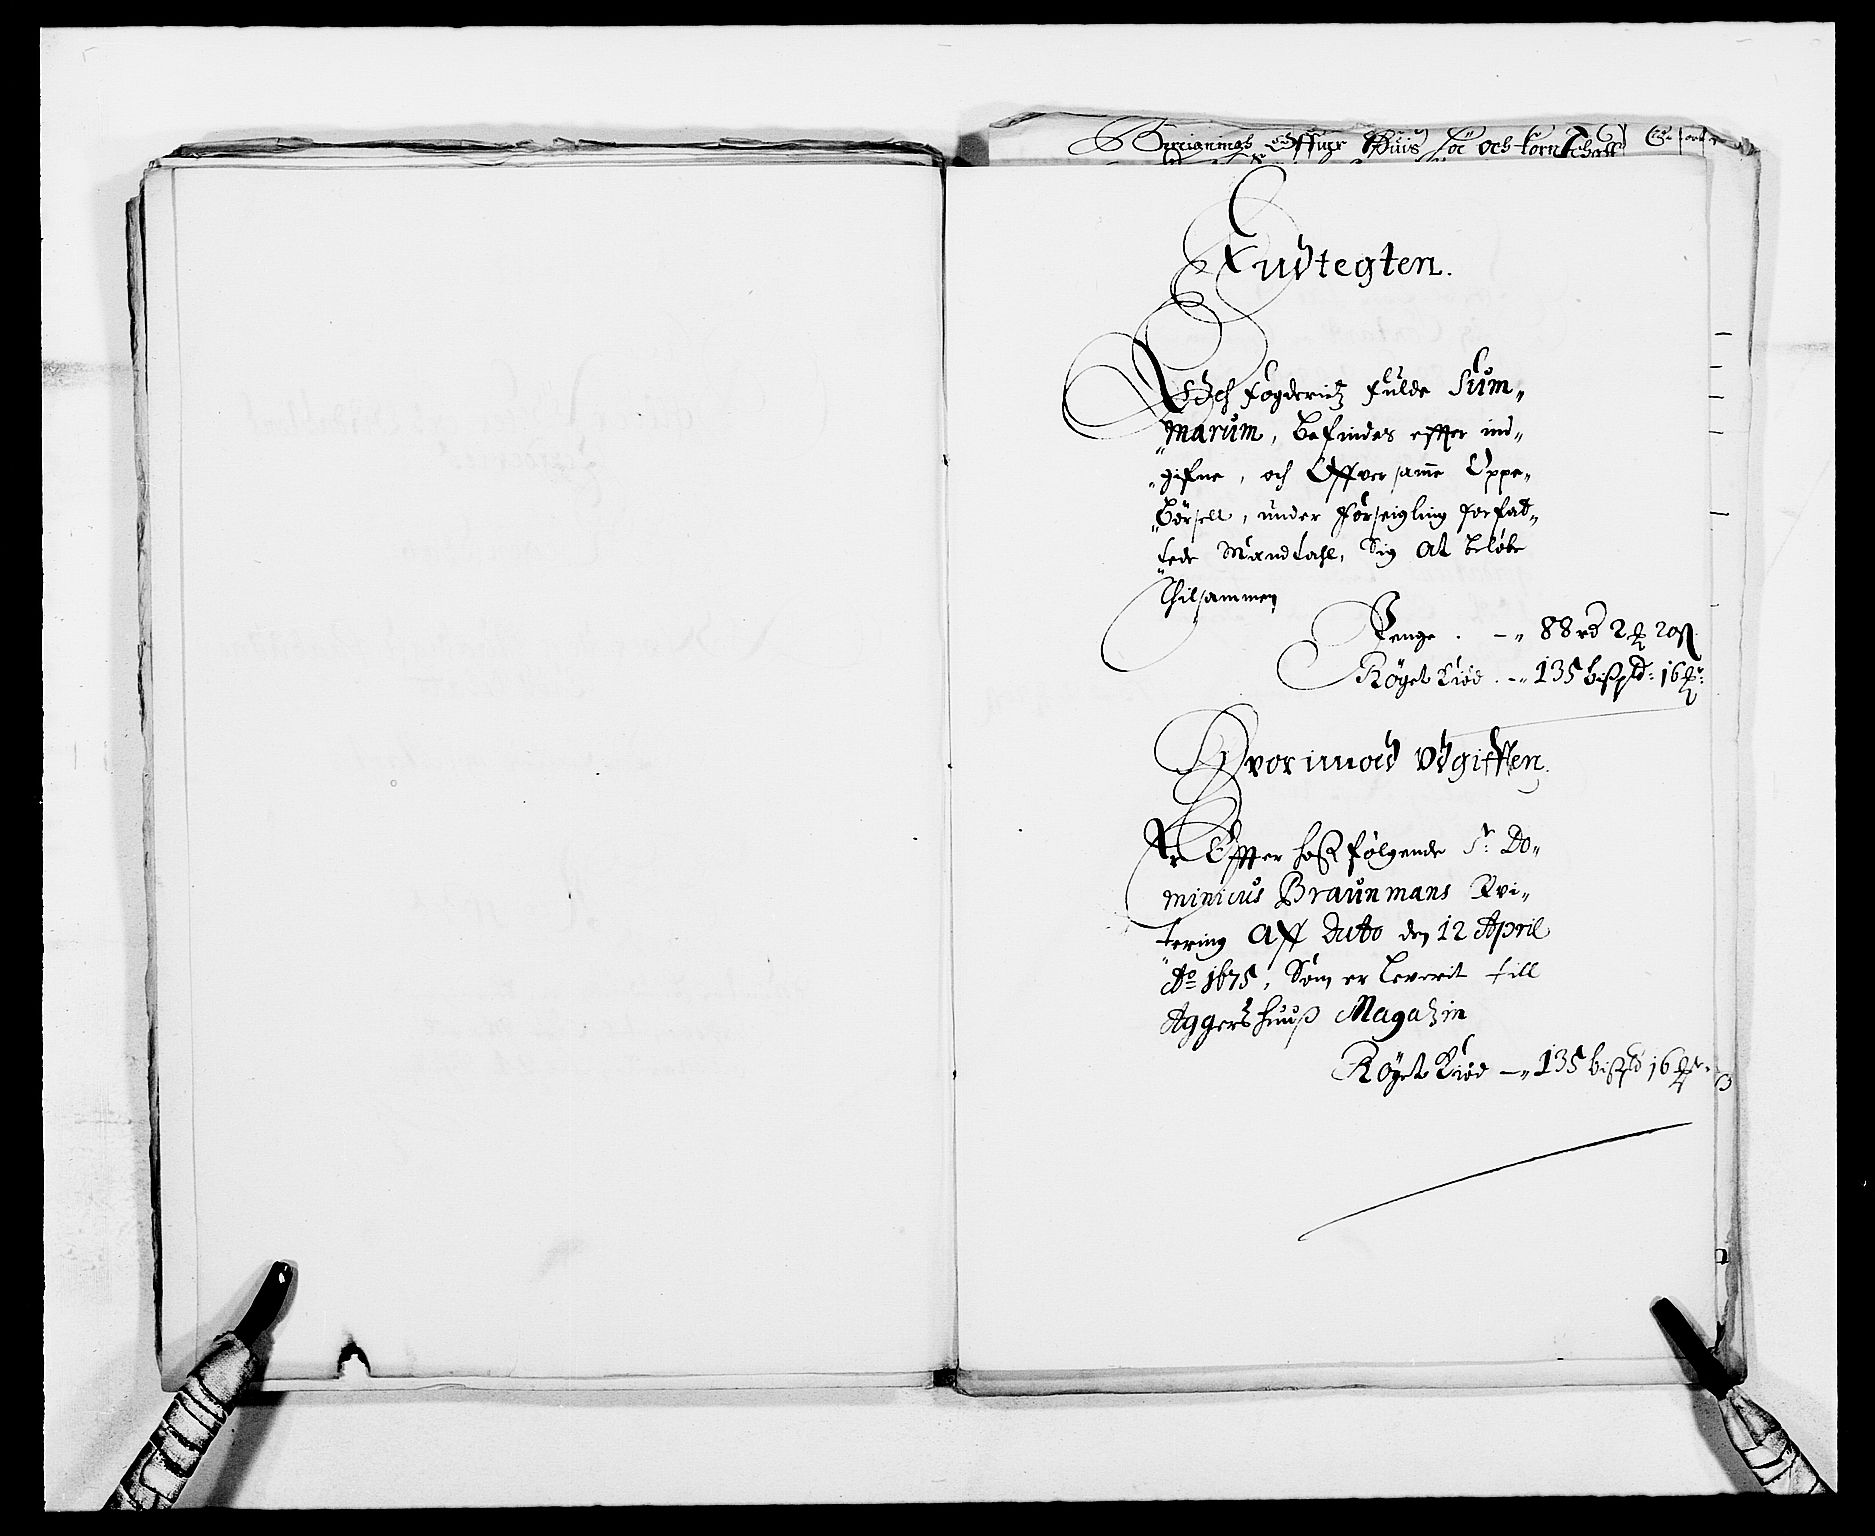 Bereignings Offuer Huus Höe och Korn
Indtegten.
Och fogderietz fulde Sum„
„marum, befindes effter ind„
„gifne, och Offver samme Oppe„
„börsell, under forseigling forfat„
„tede Mandtahl, Sig at belöbe
Thilsammen
Penge . —„ 88 rd 2 20 ß
Röget Kiöd . —„ 135 bißpd: 16
Hvorimod Udgifften.
Er Effter hoßfølgende Sr: Do„
minicus Braunmans Qvi„
„tering aff Dato den 12 April
Ao 1675, Som er leverit till
Aggershuuß Magazin
Röget Kiöd —„ 135 bißpd 16